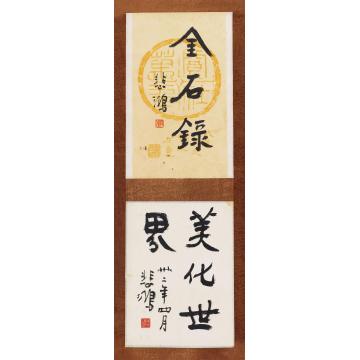 金石錄
悲鴻
美化世
界
卅二年四月
悲鴻